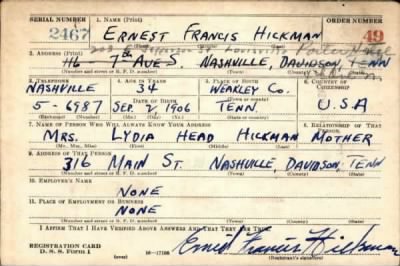 SERIAL NUMBER 1. NAME (Print) ORDER NUMBER
2467 ERNEST FRANCIS HICKMAN 49
(First) (Middle) (Last)
203 Jefferson St Louisville
2. ADDRESS (Print)
116 - 7th AVE S. NASHVILLE, DAVIDSON, TENN
(Number and street or R. F. D. number) (Town) (County) (State)
3. TELEPHONE 4. AGE IN YEARS 5. PLACE OF BIRTH 6. COUNTRY OF CITIZENSHIP
NASHVILLE 34 WEAKLEY CO.
DATE OF BIRTH (Town or county)
5-6987 SEP. 7, 1906 TENN U.S.A
(Exchange) (Number) (Mo.) (Day) (Yr.) (State or country)
7. NAME OF PERSON WHO WILL ALWAYS KNOW YOUR ADDRESS 8. RELATIONSHIP OF THAT PERSON
MRS. LYDIA HEAD HICKMAN MOTHER
(Mr., Mrs., Miss) (First) (Middle) (Last)
9. ADDRESS OF THAT PERSON
316 MAIN ST. NASHVILLE, DAVIDSON, TENN
(Number and street or R. F. D. number) (Town) (County) (State)
10. EMPLOYER'S NAME
NONE
11. PLACE OF EMPLOYMENT OR BUSINESS
NONE
(Number and street or R. F. D. number) (Town) (County) (State)
I AFFIRM THAT I HAVE VERIFIED ABOVE ANSWERS AND THAT THEY ARE TRUE.
REGISTRATION CARD
D. S. S. Form 1 16-17105 Ernest Francis Hickman
(Registrant's signature)